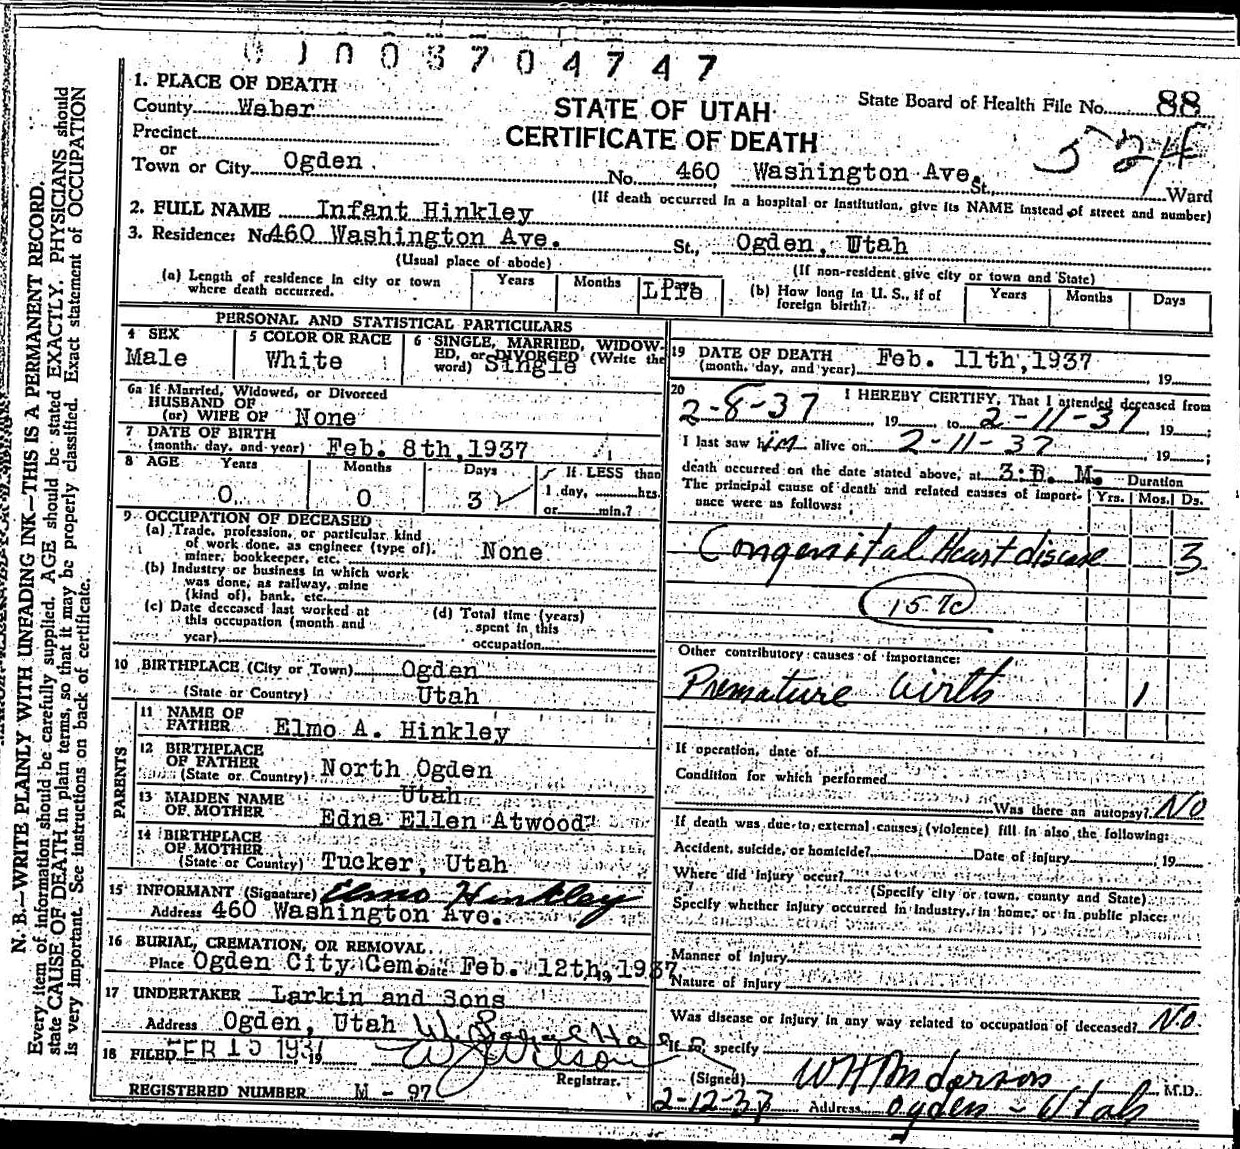 1. PLACE OF DEATH
County Weber
STATE OF UTAH
CERTIFICATE OF DEATH
State Board of Health File No. 88
524
Precinct
or
Town or City Ogden No. 460 Washington Ave. St., Ward
(If death occurred in a hospital or institution, give its NAME instead of street and number)
2. FULL NAME Infant Hinkley
3. Residence: No 460 Washington Ave. St., Ogden, Utah
(Usual place of abode) (If non-resident give city or town and State)
(a) Length of residence in city or town where death occurred. Years Months Days Life
(b) How long in U. S., if of foreign birth? Years Months Days
PERSONAL AND STATISTICAL PARTICULARS
4 SEX Male
5 COLOR OR RACE White
6 SINGLE, MARRIED, WIDOWED, or DIVORCED (Write the word) Single
6a If Married, Widowed, or Divorced
HUSBAND OF
(or) WIFE OF None
7 DATE OF BIRTH
(month, day, and year) Feb. 8th, 1937
8 AGE Years Months Days If LESS than
0 0 3 1 day, hrs.
or min.?
9 OCCUPATION OF DECEASED
(a) Trade, profession, or particular kind
of work done, as engineer (type of),
miner, bookkeeper, etc. None
(b) Industry or business in which work
was done, as railway, mine
(kind of), bank, etc.
(c) Date deceased last worked at
this occupation (month and
year)
(d) Total time (years)
spent in this
occupation
10 BIRTHPLACE (City or Town) Ogden
(State or Country) Utah
PARENTS
11 NAME OF
FATHER Elmo A. Hinkley
12 BIRTHPLACE
OF FATHER
(State or Country) North Ogden
Utah
13 MAIDEN NAME
OF MOTHER Edna Ellen Atwood
14 BIRTHPLACE
OF MOTHER
(State or Country) Tucker, Utah
15 INFORMANT (Signature) Elmo Hinkley
Address 460 Washington Ave.
16 BURIAL, CREMATION, OR REMOVAL
Place Ogden City Cem. Date Feb. 12th, 1937
17 UNDERTAKER Larkin and Sons
Address Ogden, Utah
18 FILED FEB 15 1937 19
Registrar.
REGISTERED NUMBER M - 97
19 DATE OF DEATH
(month, day, and year) Feb. 11th, 1937 , 19
20 I HEREBY CERTIFY, That I attended deceased from
2-8-37 19 to 2-11-37 19 ;
I last saw him alive on 2-11-37 19 ;
death occurred on the date stated above, at 3:P. M. Duration
The principal cause of death and related causes of importance were as follows: Yrs. Mos. Ds.
Congenital Heart disease 3
157c
Other contributory causes of importance:
Premature birth 1
If operation, date of
Condition for which performed
Was there an autopsy? No
If death was due to external causes (violence) fill in also the following:
Accident, suicide, or homicide? Date of injury , 19
Where did injury occur?
(Specify city or town, county and State)
Specify whether injury occurred in industry, in home, or in public place:
Manner of injury
Nature of injury
Was disease or injury in any way related to occupation of deceased? No
If so, specify
(Signed) W H Anderson M.D.
2-12-37 Address Ogden - Utah
N. B.—WRITE PLAINLY WITH UNFADING INK—THIS IS A PERMANENT RECORD.
Every item of information should be carefully supplied. AGE should be stated EXACTLY. PHYSICIANS should
state CAUSE OF DEATH in plain terms, so that it may be properly classified. Exact statement of OCCUPATION
is very important. See instructions on back of certificate.